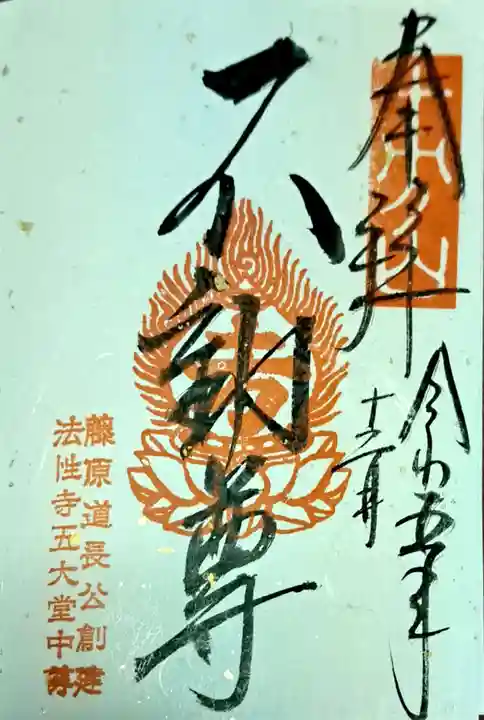 奉拝
令和五年
十二月
不動尊
藤原道長公創建
法性寺五大堂中尊